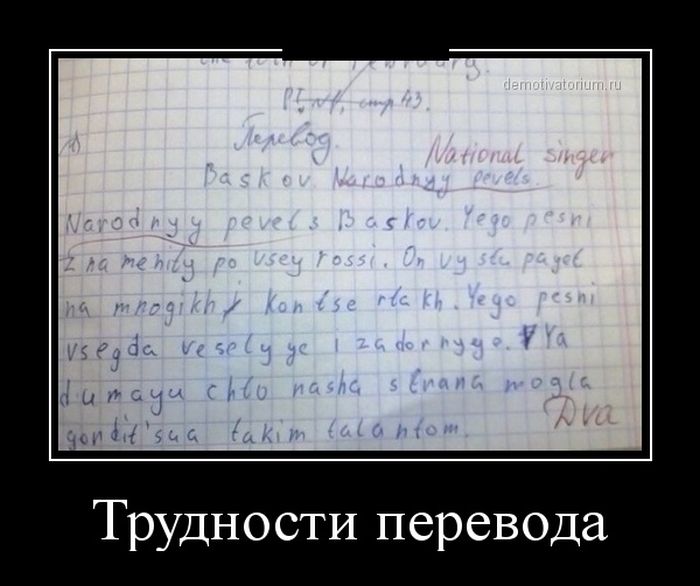 demotivatorium.ru
February.
стр 43.
Перевод.
National singer
Baskov. Narodnyy pevets.
Narodnyy pevets Baskov. Yego pesni
znamenity po vsey rossi. On vystupayet
na mnogikh kontsertakh. Yego pesni
vsegda veselyye i zadornyye. Ya
dumayu chto nasha strana mogla
gordit'sya takim talantom.
Dva
Трудности перевода